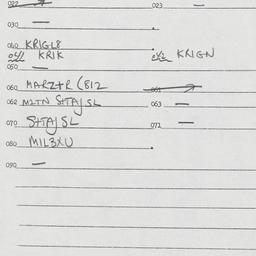 022 023 —
030 —
040 KRIGL8
041 KRIK 042 KRIGN
050 —
060 MARZ+R (812 061
062 M2TN S+TAJ SL 063 —
070 S+TAJ SL 072 —
080 MIL3XU
090 —